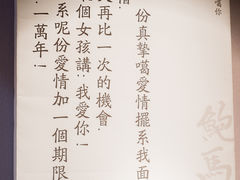 份真摯噶愛情擺系我面
再比一次的機會.
個女孩講:我愛你!
系呢份愛情加一個期限
一萬年!